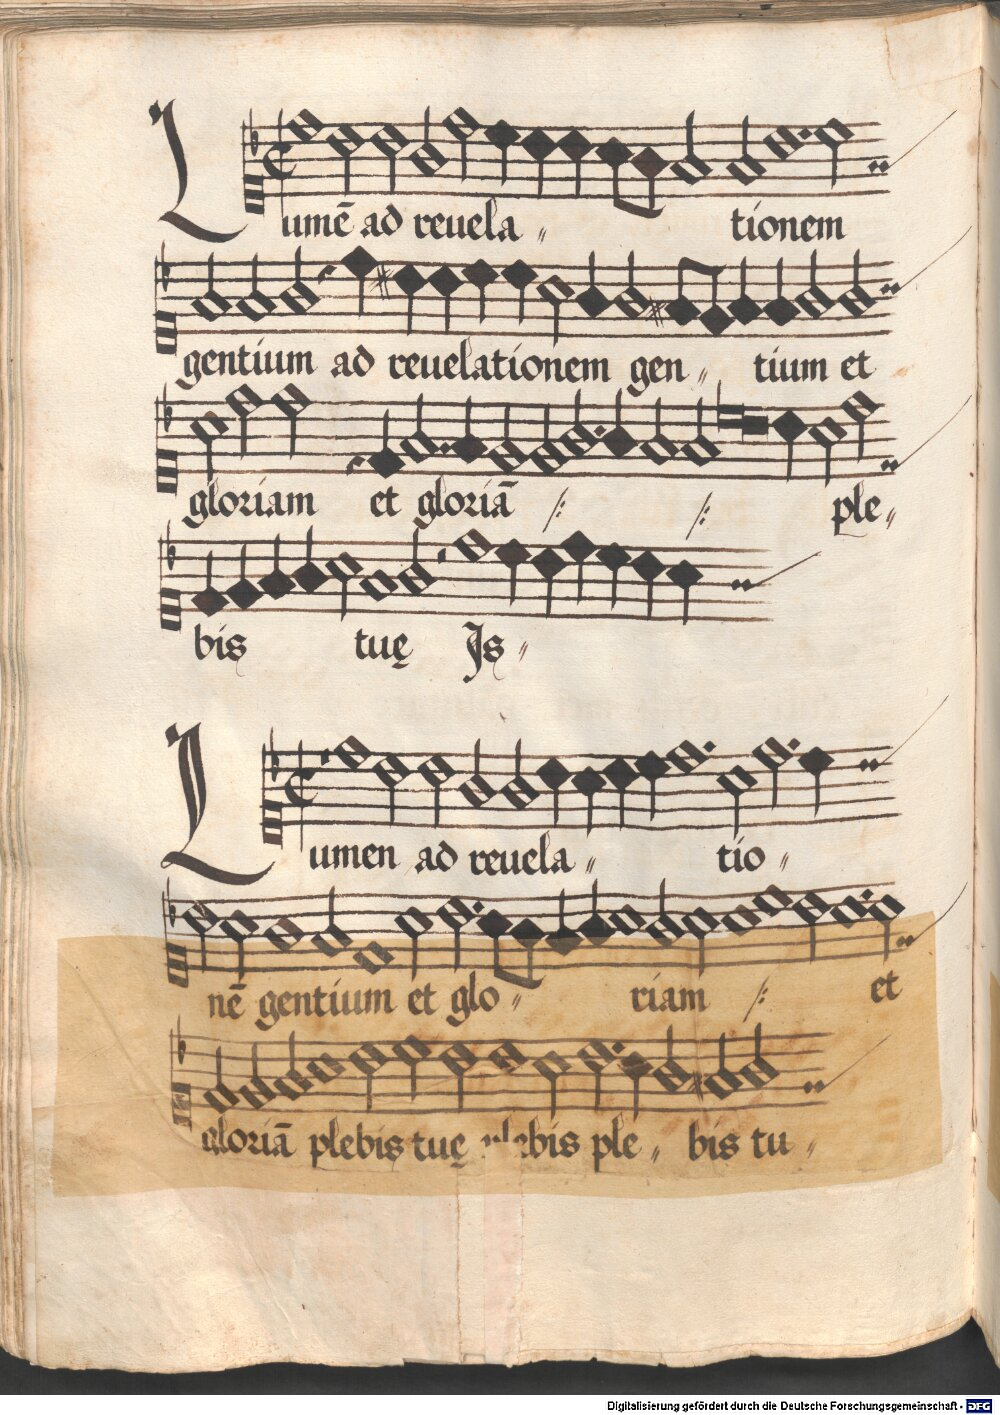 Lumē ad reuela〃 tionem
gentium ad reuelationem gen〃 tium et
gloriam et gloriā /: /: ple〃
bis tuę Js〃
Lumen ad reuela〃 tio〃
nē gentium et glo〃 riam /: et
gloriā plebis tuę plebis ple〃 bis tu〃
Digitalisierung gefördert durch die Deutsche Forschungsgemeinschaft - DFG